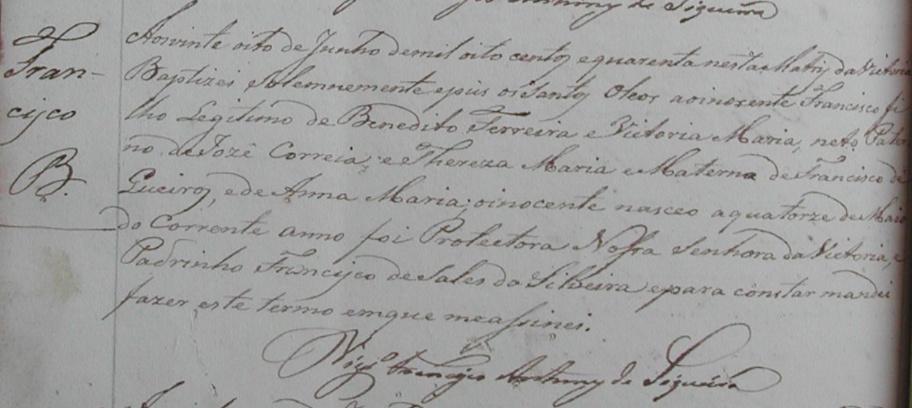 Antunes de Siqueira
Fran-
cisco
B.
Aos vinte oito de Junho de mil oito centos e quarenta nesta Matriz da Victoria
Baptizei solemnemente e pus os Santos Oleos ao inocente Francisco fi
lho Legitimo de Benedito Ferreira e Victoria Maria, neto Pater
no de Jozê Correia, e Thereza Maria e Materno de Francisco de
Queiros, e de Anna Maria; o inocente nasceo a quatorze de Maio
do Corrente anno foi Protectora Nossa Senhora da Victoria, e
Padrinho Francisco de Sales da Silveira e para constar mandei
fazer este termo em que me assinei.
Vigº Francisco Antunes de Siqueira